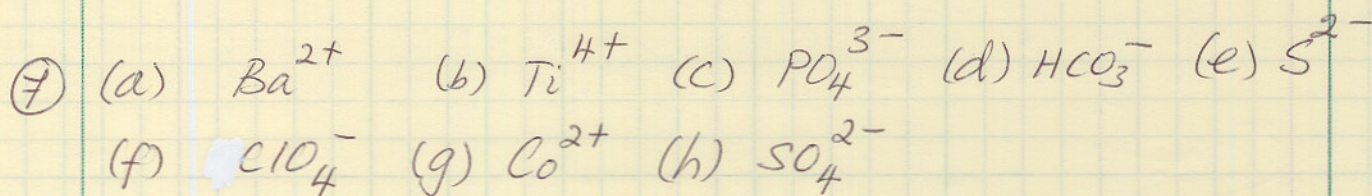 ⑦ (a) Ba²⁺ (b) Ti⁴⁺ (c) PO₄³⁻ (d) HCO₃⁻ (e) S²⁻
(f) ClO₄⁻ (g) Co²⁺ (h) SO₄²⁻